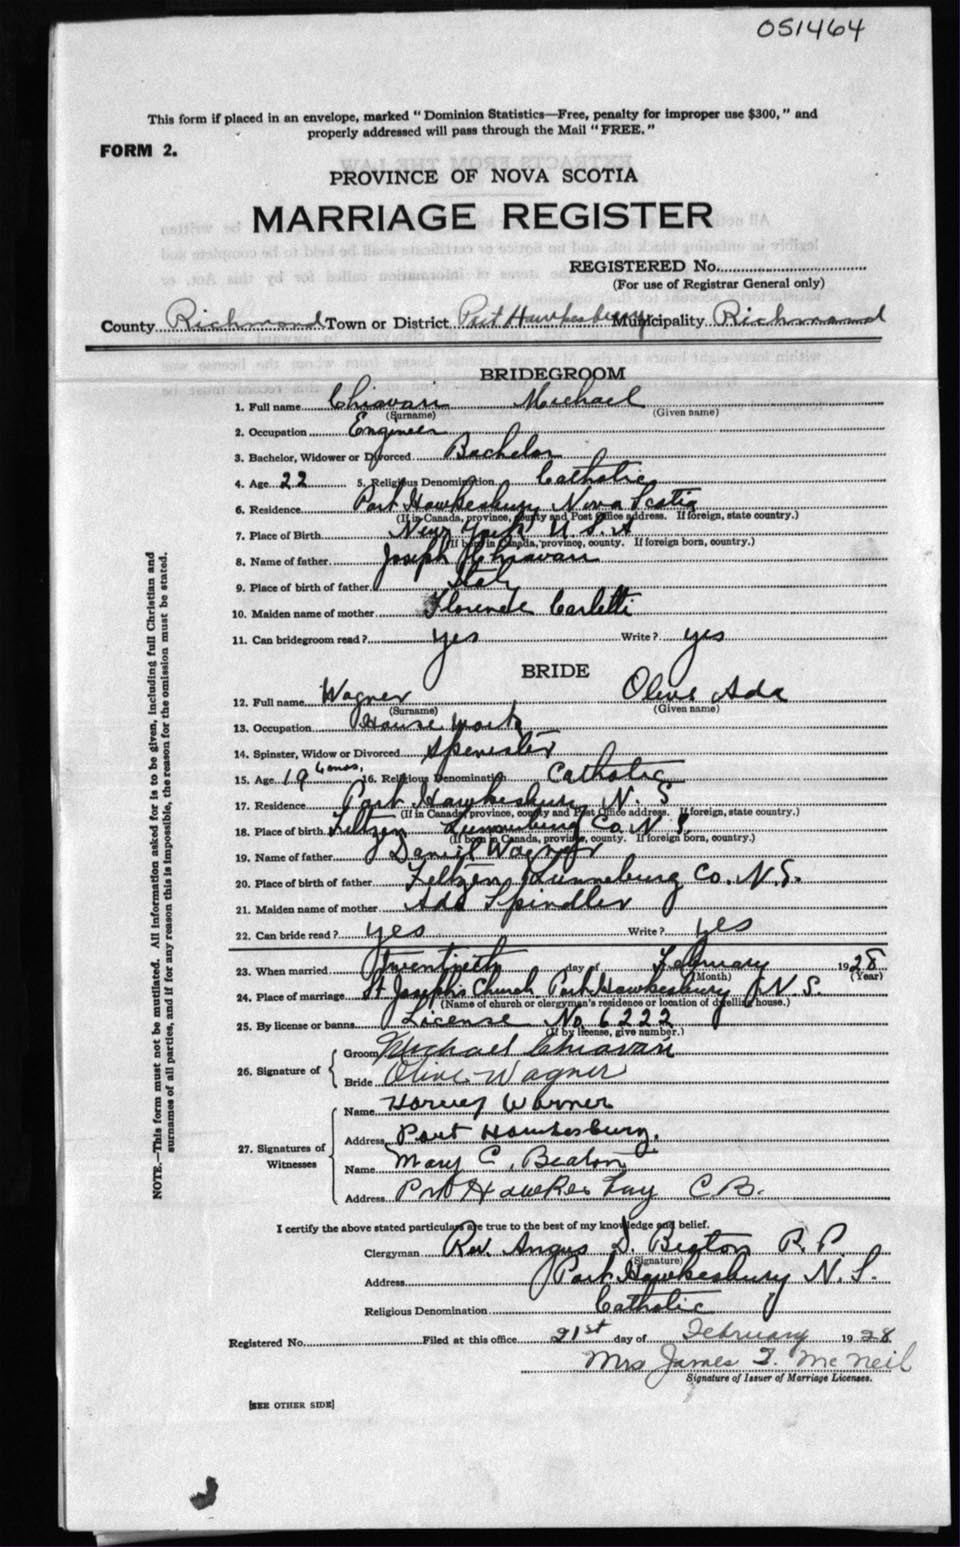 051464
This form if placed in an envelope, marked "Dominion Statistics—Free, penalty for improper use $300," and
properly addressed will pass through the Mail "FREE."
FORM 2.
PROVINCE OF NOVA SCOTIA
MARRIAGE REGISTER
REGISTERED No.
(For use of Registrar General only)
County Richmond Town or District Port Hawkesbury Municipality Richmond
BRIDEGROOM
1. Full name Chiavari Michael
(Surname) (Given name)
2. Occupation Engineer
3. Bachelor, Widower or Divorced Bachelor
4. Age 22 5. Religious Denomination Catholic
6. Residence Port Hawkesbury Nova Scotia
(If in Canada, province, county and Post Office address. If foreign, state country.)
7. Place of Birth New York U.S.A
(If born in Canada, province, county. If foreign born, country.)
8. Name of father Joseph Chiavari
9. Place of birth of father Italy
10. Maiden name of mother Florence Carletti
11. Can bridegroom read? yes Write? yes
BRIDE
12. Full name Wagner Olive Ada
(Surname) (Given name)
13. Occupation House work
14. Spinster, Widow or Divorced Spenester
15. Age 19 6 mos. 16. Religious Denomination Catholic
17. Residence Port Hawkesbury N. S
(If in Canada, province, county and Post Office address. If foreign, state country.)
18. Place of birth Feltzen Lunenburg Co. N. S.
(If born in Canada, province, county. If foreign born, country.)
19. Name of father Daniel Wagner
20. Place of birth of father Feltzen Lunneburg Co. N.S.
21. Maiden name of mother Ada Spindler
22. Can bride read? yes Write? yes
23. When married Twentieth day of February 1928
(Month) (Year)
24. Place of marriage St Joseph's Church Port Hawkesbury N.S.
(Name of church or clergyman's residence or location of dwelling house.)
25. By license or banns License No 6222
(If by license, give number.)
26. Signature of
Groom Michael Chiavari
Bride Olive Wagner
27. Signatures of Witnesses
Name Harvey Warner
Address Port Hawkesbury.
Name Mary C. Beaton
Address Port Hawkesbury C B.
I certify the above stated particulars are true to the best of my knowledge and belief.
Clergyman Rev. Angus D. Beaton P. P.
(Signature)
Address Port Hawkesbury N. S.
Religious Denomination Catholic
Registered No. Filed at this office 21st day of February 1928
Mrs James T. McNeil
Signature of Issuer of Marriage Licenses.
[SEE OTHER SIDE]
NOTE.—This form must not be mutilated. All information asked for is to be given, including full Christian and
surnames of all parties, and if for any reason this is impossible, the reason for the omission must be stated.